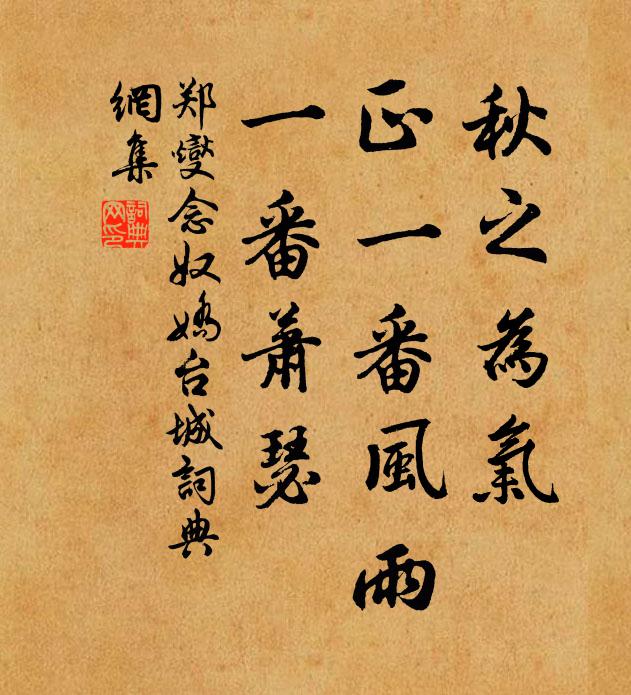 秋之為氣
正一番風雨
一番蕭瑟
郑燮念奴嬌台城詞典
網集
詞典
网印